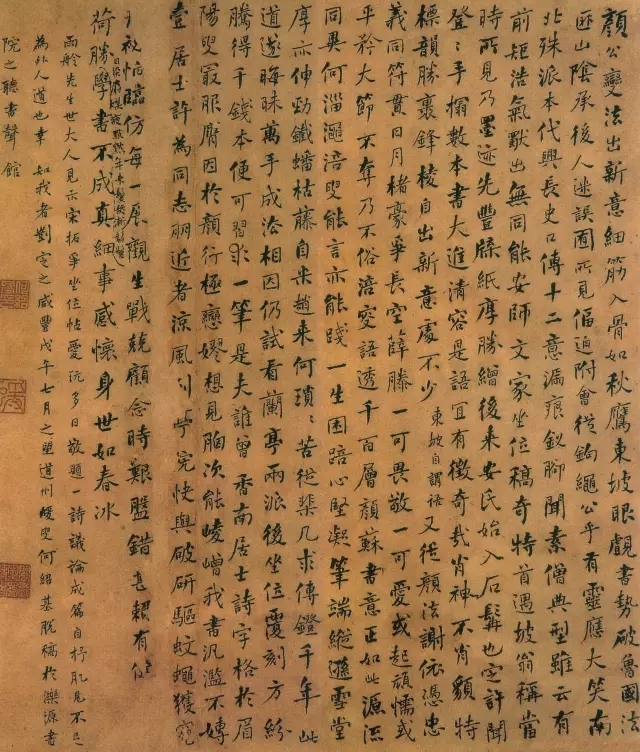 顏公變法出新意細筋入骨如秋鷹東坡眼覷書勢破魯國法
匪山陰承後人迷誤囿所見偪迫附會從鉤繩公乎有靈應大笑南
北殊派本代興長史口傳十二意漏痕釵腳聞素僧典型雖云有
前矩浩氣獸出無同能安師文家坐位稿奇特首遇坡翁稱當
時所見乃墨迹先豐牘紙厚勝繒後来安氏始入石髯也定許聞
登之手搨數本書大進清容是語宜有徵奇哉肖神不肖貌特
標韻勝裹鋒棱自出新意處不少東坡自謂語又從顏法謝依憑忠
義同符貫日月楮豪爭長空薛滕一可畏敬一可愛或起頑懦或
平矜大節不奪乃不俗涪叟語透千百層顏蘇書意正如此源流
同異何淄澠涪叟能言亦能踐一生困踣心堅凝筆端縱遜雪堂
厚亦伸勁鐵蟠枯藤自米趙来何瑣瑣苦從棐几求傳鐙千年此
道遂晦昧萬手成沿相因仍試看蘭亭兩派後坐位覆刻方紛
騰得千錢本便可習求一筆是夫誰曾香南居士詩字格於眉
陽叟寂服膺因於顏行極戀嫪想見胸次能崚嶒我書汎濫不嫥
壹居士許為同志朋近者涼風到學究快與破研驅蚊蠅獲窺
枕帖臨仿每一展觀生戰兢顧念時艱盤錯甚賴有
荷勝學書不成真細事感懷身世如春冰
雨舲先生世大人見示宋拓爭坐位帖愛玩多日敬題一詩議論成篇自抒肊見不足
為外人道也幸如我者劉定之咸豐戊午七月之望道州叟何紹基脫稿於濼源書
院之聽書聲館